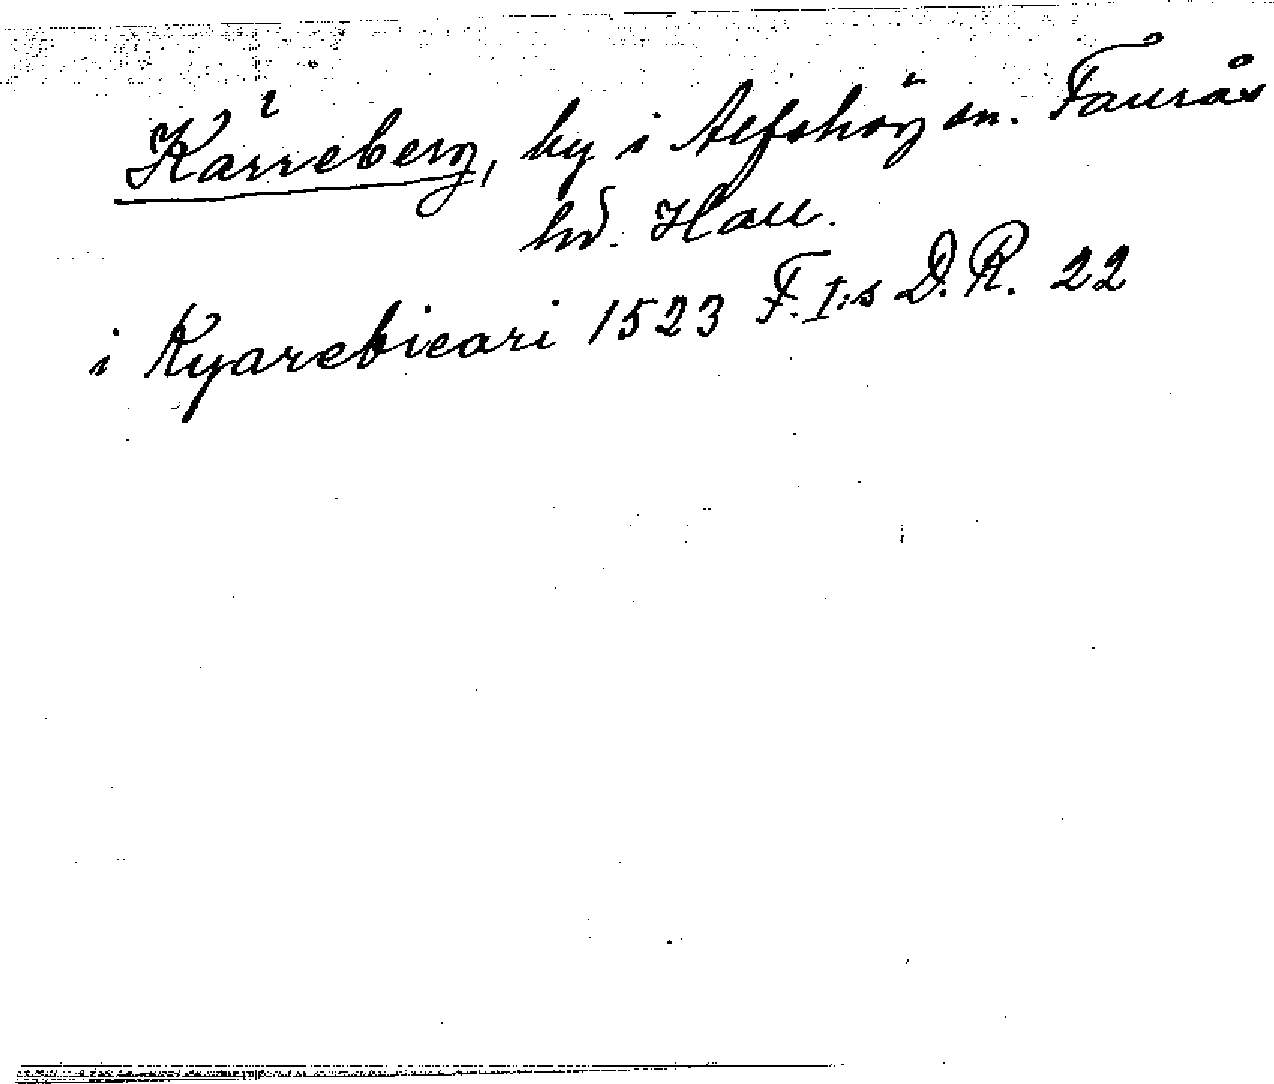 Kärreberg, by i Alfshög sn. Faurås
hd. Hall.
i Kyarebieari 1523 F.I:s D.R. 22